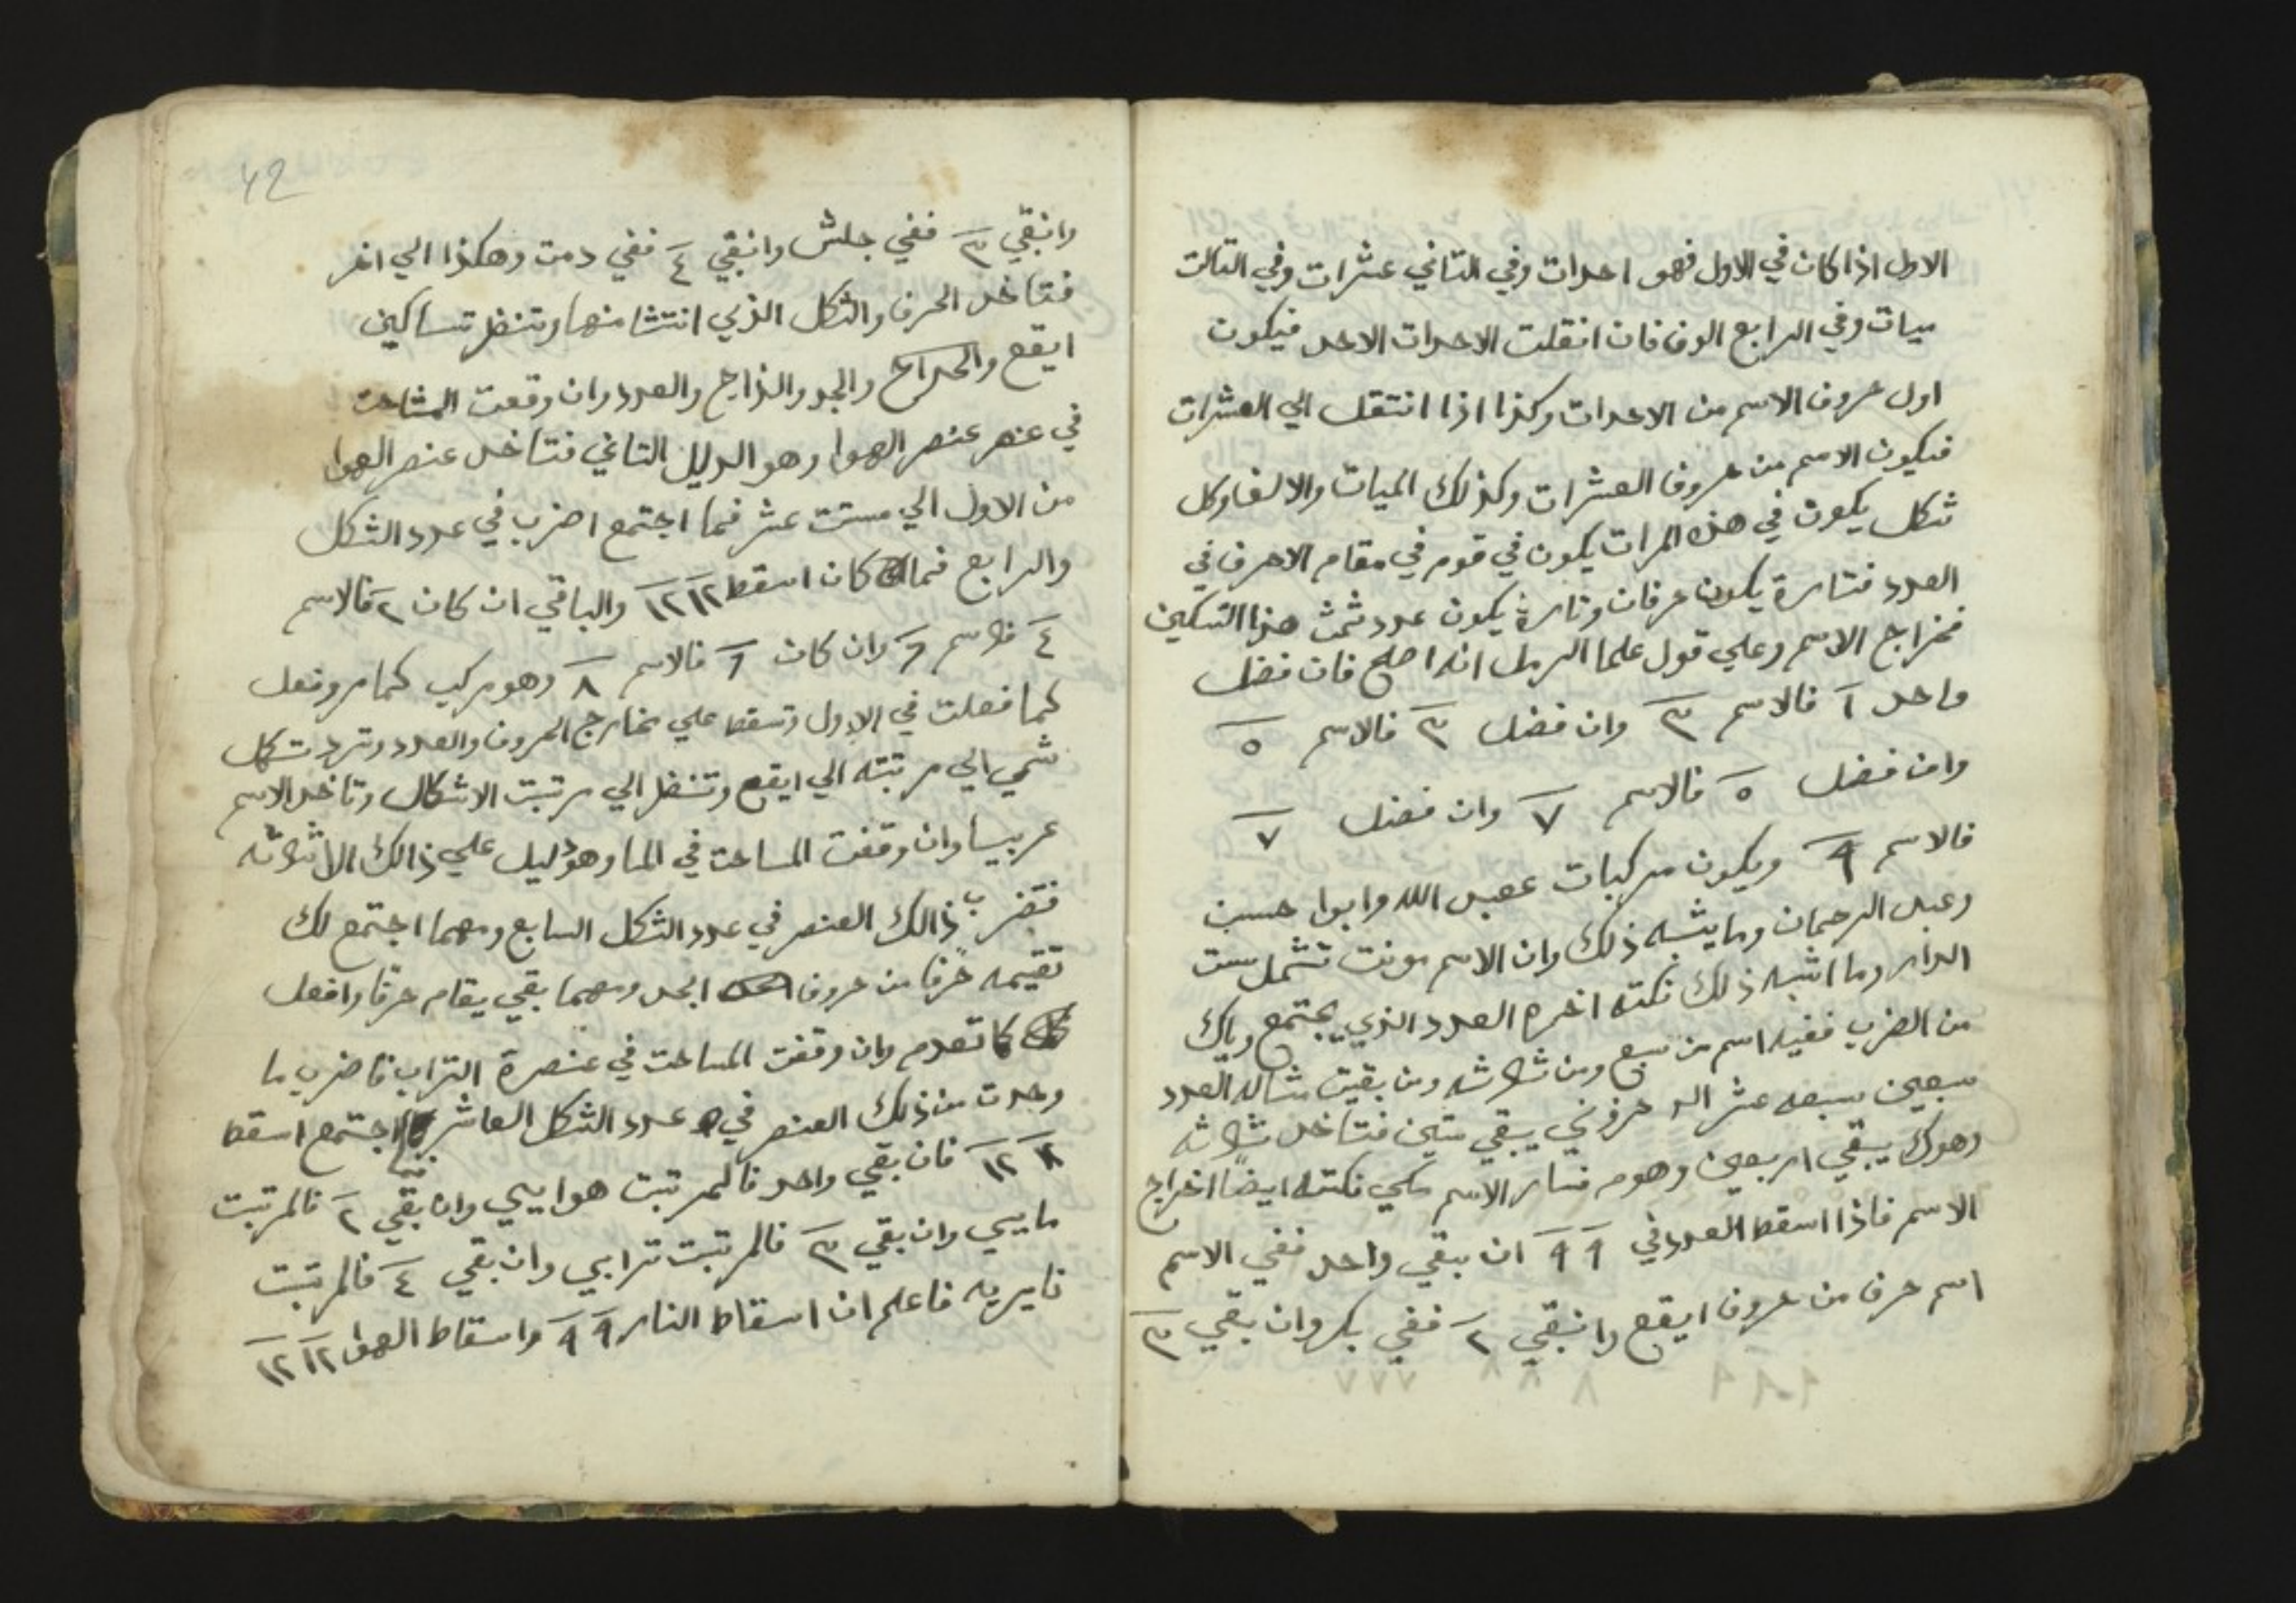 الاول اذا كان في الاول فهو احدات وفي التاني عشرات وفي التالت
ميات وفي الرابع الوف فان انقلت الاحدات الاحد فيكون
اول حروف الاسم من الاحدات وكذا اذا انتقل الي العشرات
فيكون الاسم من حروف العشرات وكذلك الميات والالف وكل
شكل يكون في هذه المرات يكون في قوم في مقام الاحرف في
العدد فتارة يكون حرفان وتارة يكون عدد ثمت هذا التسكين
فخراج الاسم وعلي قول علما الرمل انه اصلح فان فضل
واحد ١ فالاسم ٣ وان فضل ٣ فالاسم ٥
وان فضل ٥ فالاسم ٧ وان فضل ٧
فالاسم ٩ ويكون مركبات عبد الله وابوا حسن
وعبد الرحمان وما يشبه ذلك وان الاسم مونت تشمل ست
الدار وما اشبه ذلك نكته اخره العدد الذي يجتمع وياك
من الضرب ففيه اسم من سبع ومن ثلاثه ومن بقيت مثاله العدد
سبعين سبعه عشر الد حزوني يبقي ستين فتاخد ثلاثه
وهوك يبقي اربعين وهوم فسار الاسم مكي نكته ايضًا اخراج
الاسم فاذا اسقط العدد في ٩ ٩ ان يبقي واحد ففي الاسم
اسم حرف من حروف ايقع وانبقي ٢ ففي بكر وان بقي ٣
42
وانبقي ٣ ففي جلش وانبقي ٤ ففي دمت وهكذا الي اخر
فتاخد الحرف والشكل الذي انتشا منها وتنظر تساكين
ايقع والجد والزاج والعدد وان وقعت المشاحت
في عنصر عنصر الهوا وهو الدليل التاني فتاخد عنصر الهوا
من الاول الي مستت عشر فما اجتمع اضرب في عدد الشكل
والرابع فما كان اسقط ١٢ ١٢ والباقي ان كان ٢ فالاسم
٤ فلاسم ٦ وان كان ٦ فالاسم ٨ وهو مركب كما مر وفعل
كما فعلت في الاول وتسقط علي مخارج الحروف والعدد وترد تكل
شي الي مرتبته الي ايقع وتنظر الي مرتبت الاشكال وتاخد الاسم
عربيا وان وقفت المساحت في الما وهو دليل علي ذالك الاثلاثه
فتضرب ذالك العنصر في عدد الشكل السابع ومهما اجتمع لك
تقيمه حرفًا من حروف ابجد ومهما بقي يقام حرفا وافعل
كما تقدم وان وقفت المساحت في عنصرة التراب فاضرب ما
وجدت من ذلك العنصر في عدد الشكل العاشر اجتمع اسقط
١٢ ١٢ فان بقي واحد فالمرتبت هواييي وان بقي ٢ فالمرتبت
ماييي وان بقي ٣ فالمرتبت ترابي وان بقي ٤ فالمرتبت
نايريه فاعلم ان اسقاط النار ٩ ٩ واسقاط الهوا ١٢ ١٢